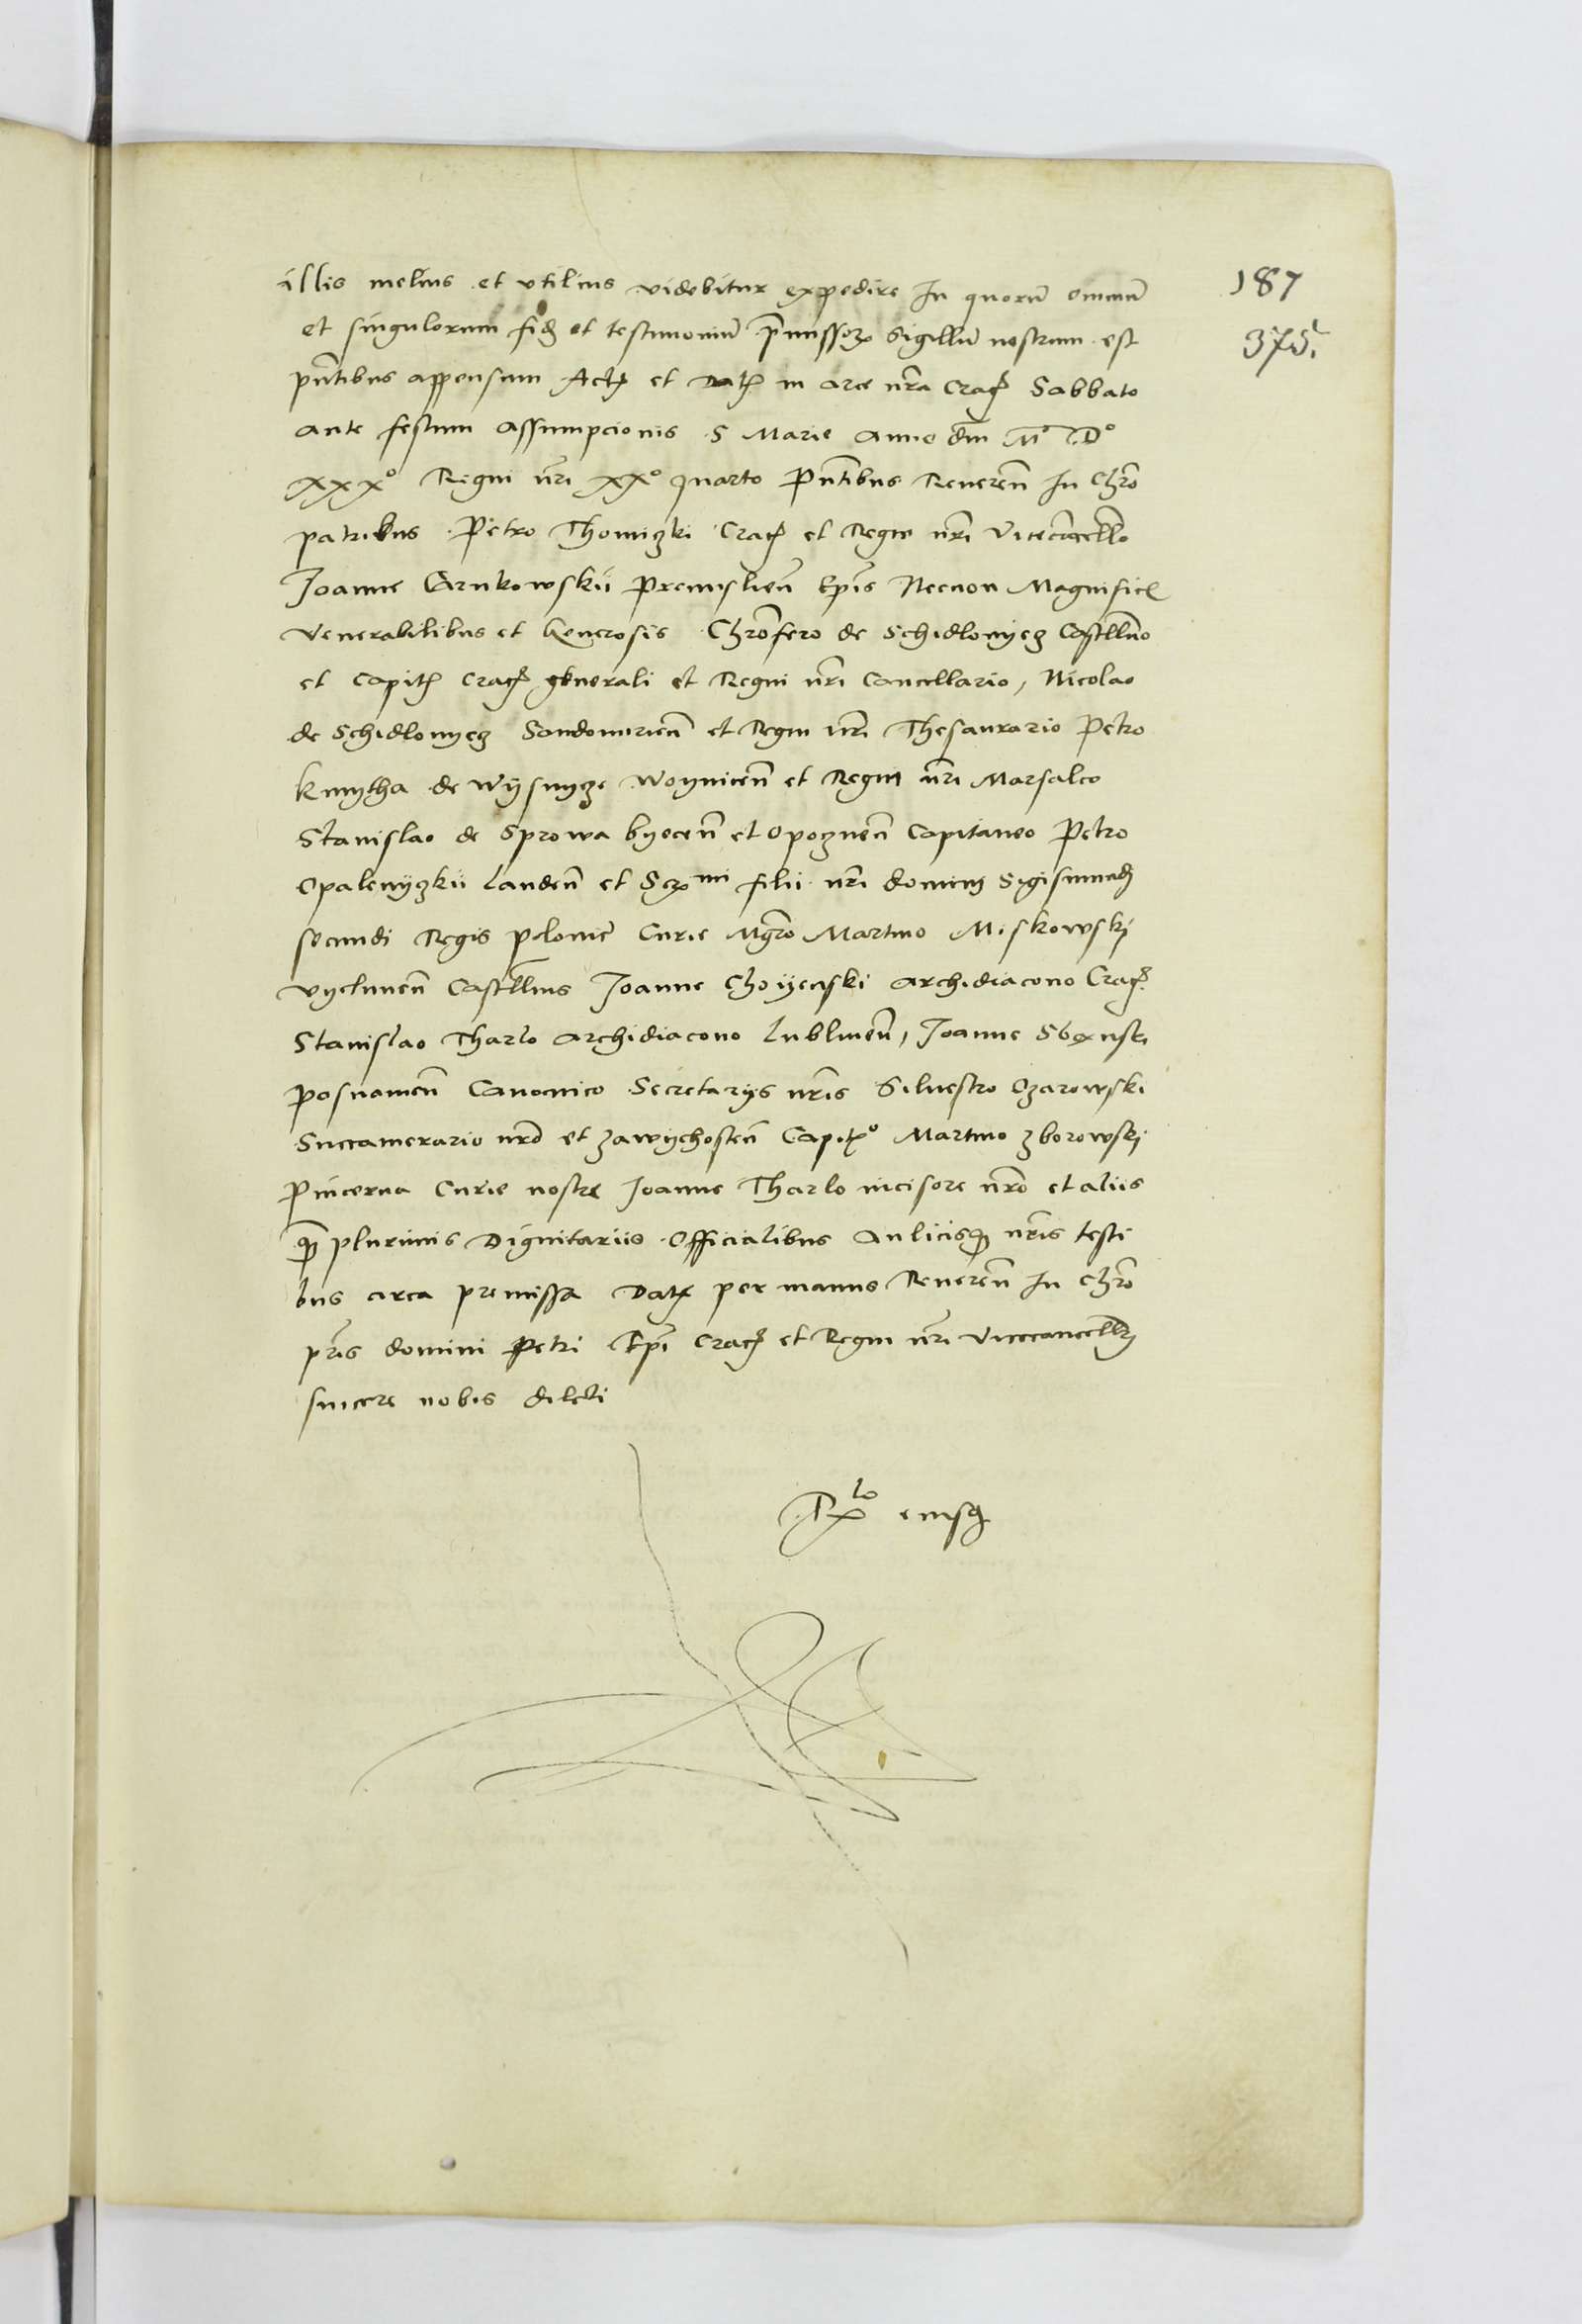 illis melius et vtilius videbitur expedire In quorũ omniũ
187
et singulorum fid et testimoniũ p̃missoꝝ Sigillũ nostrum est
375.
pñtibus appensum Actꝫ et Datꝫ in arce nr̃a Crac̃ Sabbato
ante festum assumpcionis S Marie anno dñi M° D°
xxx° Regni nr̃i xx° quarto Pñtibus Reuereñ In Chr̃o
patribus Petro Thomiczki Crac̃ et Regni nr̃i Vicecãcell̃o
Joanne Carnkowskii Premislieñ Ep̃is Necnon Magnific
Venerabilibus et Generosis Chr̃ofero de Schidlovyecz Castell̃no
et Capitꝫ Crac̃ generali et Regni nr̃i Cancellario, Nicolao
de Schidlovyecz Sandomirieñ et Regni nr̃i Thesaurario Petro
Kmytha de Wysnycze Woyniceñ et Regni nr̃i Marsalco
Stanislao de Sprowa byeceñ et Opoczneñ Capitaneo Petro
Opalenyczkii Landeñ et Serᵐⁱ filii nr̃i domini Sigismundi
secundi Regis polonie Curie Mgr̃o Martino Miskowskij
vyeluneñ Castell̃nis Joanne Choyenski archidiacono Crac̃
Stanislao Tharlo archidiacono Lublineñ, Joanne Sbnski
Posnanieñ Canonico Secretarijs nr̃is Siluestro Ozarowski
Succamerario nr̃o et zawychosteñ Capitꝫ° Martino zborowskj
Pincerna Curie nostre Joanne Tharlo incisore nr̃o et aliis
q̃ plurimis Dignitariis Officialibus Aulicisqꝫ nr̃is testi
bus circa premissa Datꝫ per manus Reuereñ In Chr̃o
pr̃is domini Petri Ep̃i Crac̃ et Regni nr̃i Vicecancell̃rij
sincere nobis dilecti
Rˡᵒ eiusd